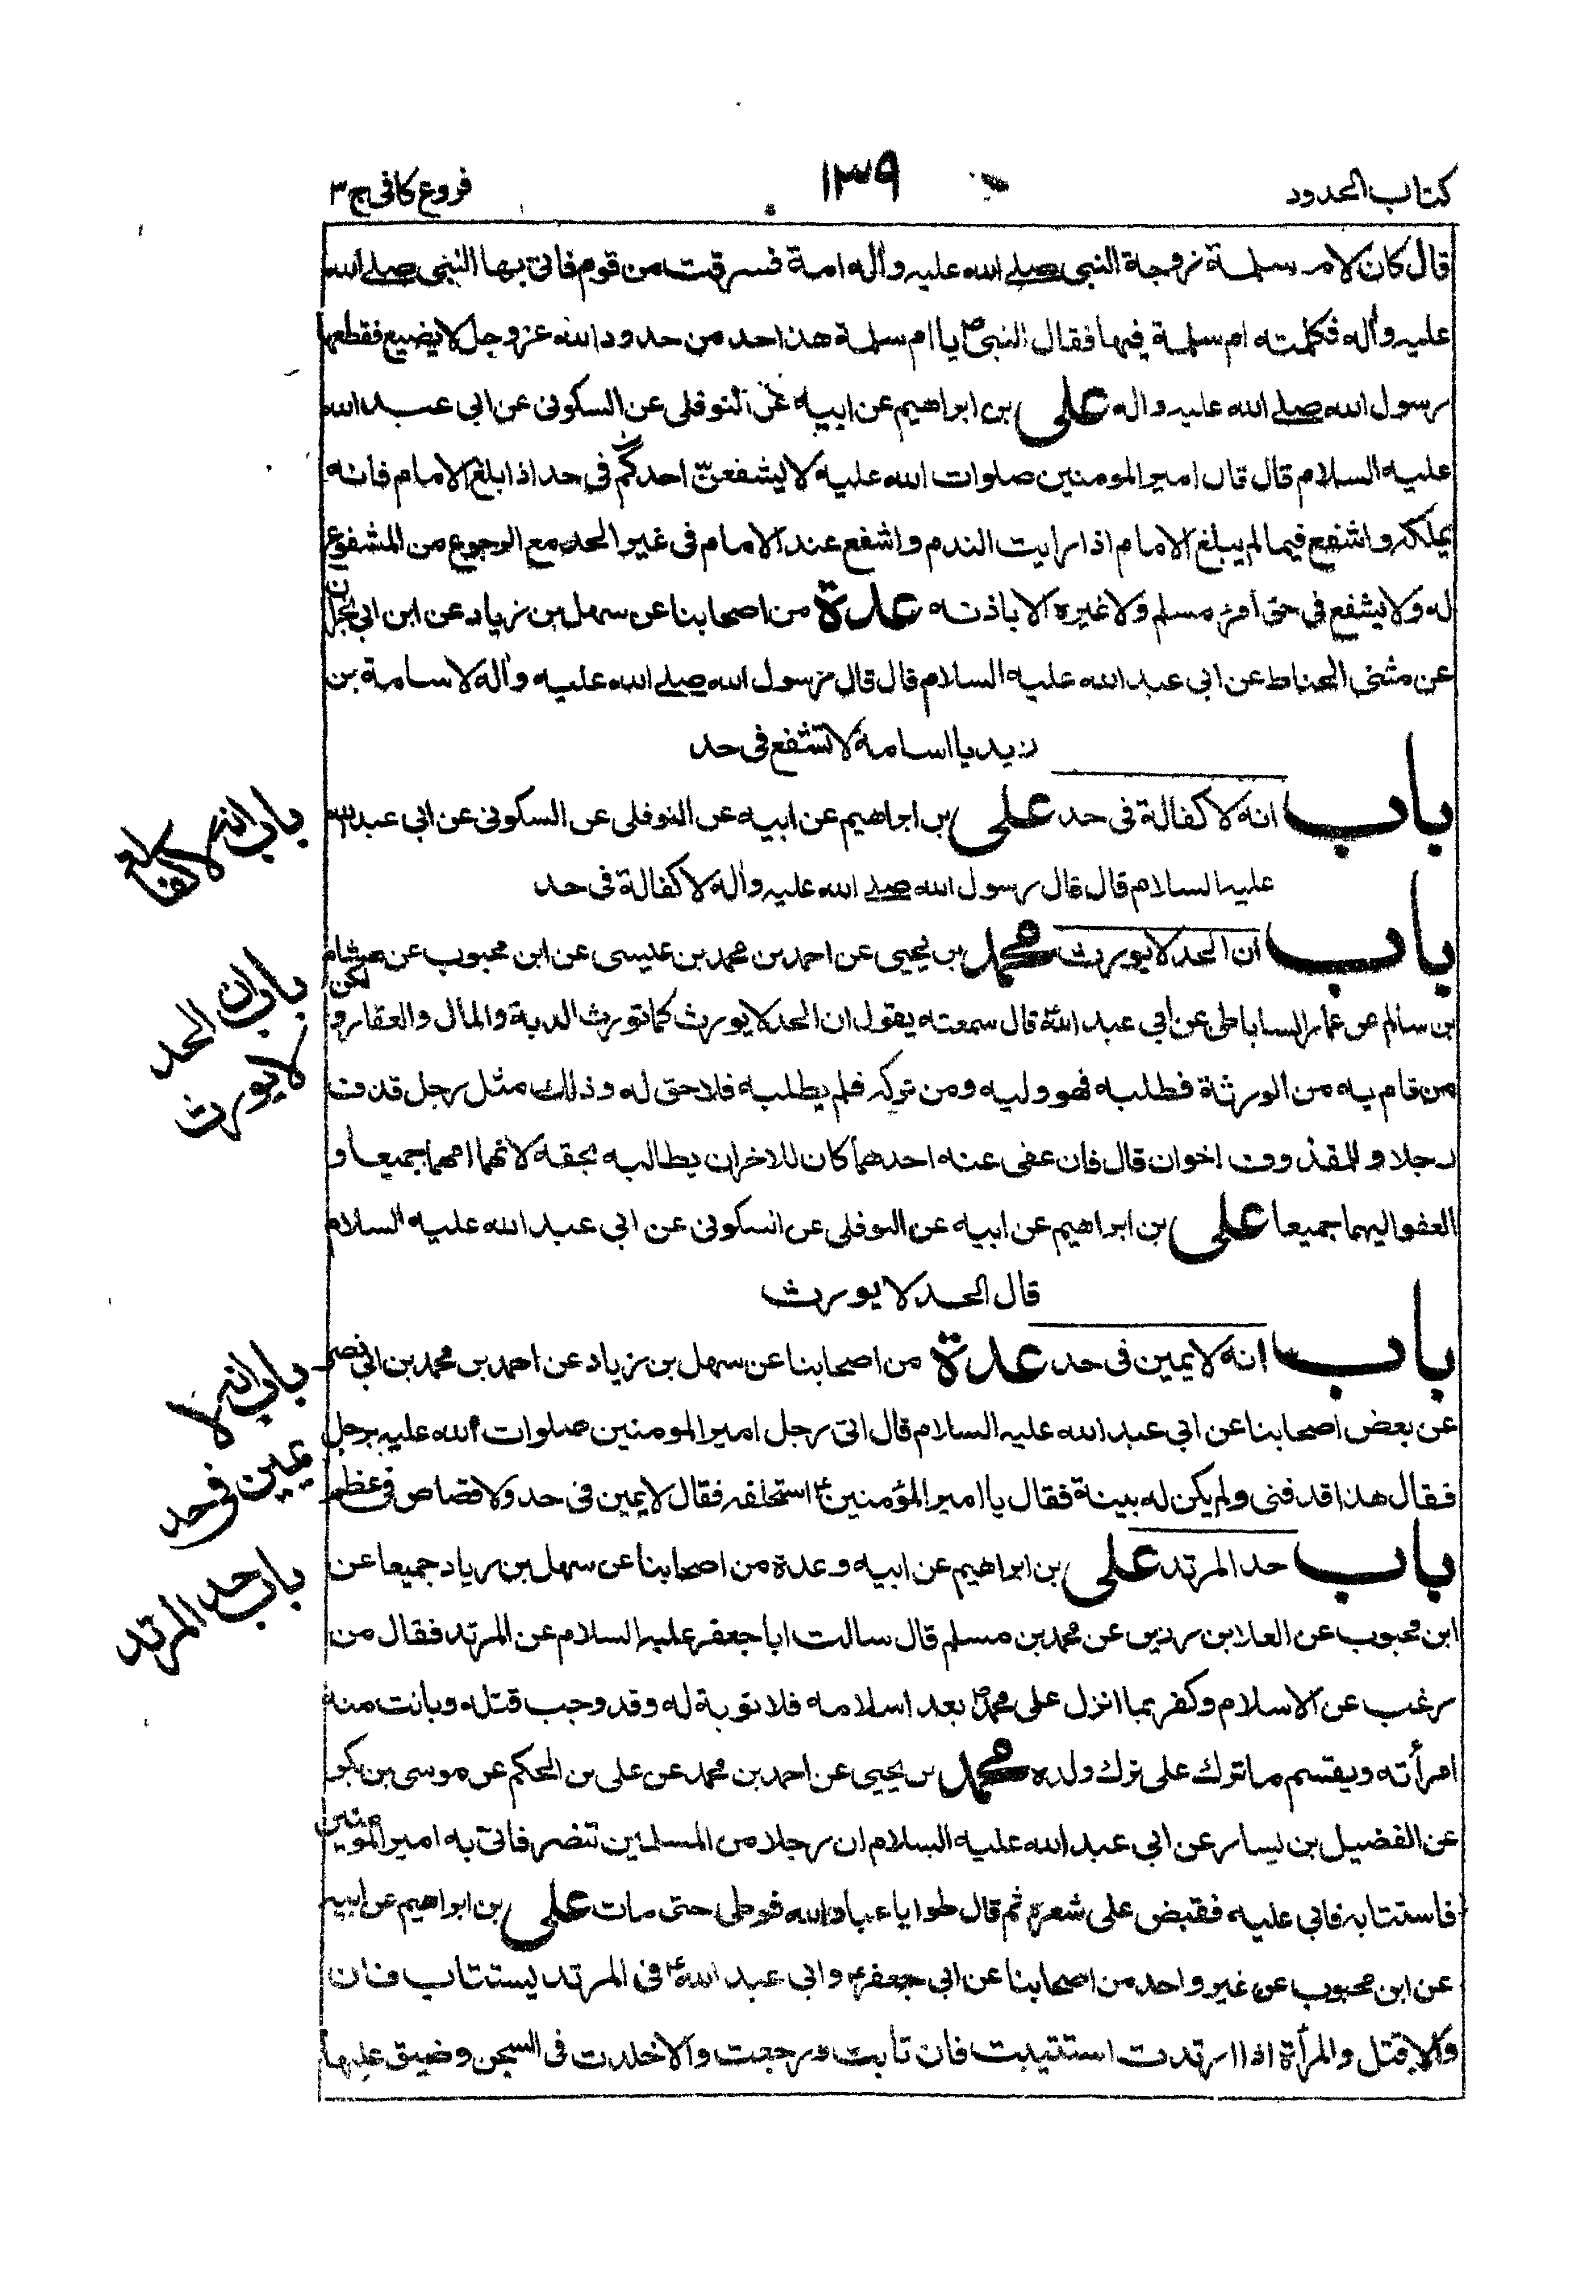 كتاب الحدود ۱۳۹ فروع كافى ج ۳
قال كان لام سلمة زوجة النبى صلى الله عليه واله امة فسرقت من قوم فاتى بها النبى صلى الله
عليه واله فكلمته ام سلمة فيها فقال النبى ص يا ام سلمة هذا حد من حدود الله عزوجل لا يضيع فقطعها
رسول الله صلى الله عليه واله على بن ابراهيم عن ابيه عن النوفلى عن السكونى عن ابى عبد الله
عليه السلام قال قال امير المومنين صلوات الله عليه لا يشفعنّ احدكم فى حد اذا بلغ الامام فانه
يملكه واشفع فيما لم يبلغ الامام اذا رايت الندم واشفع عند الامام فى غير الحد مع الرجوع من المشفوع
له ولا يشفع فى حق امرء مسلم ولا غيره الا باذنه عدة من اصحابنا عن سهل بن زياد عن ابن ابى نجران
عن مثنى الحناط عن ابى عبد الله عليه السلام قال قال رسول الله صلى الله عليه واله لاسامة بن
زيد يا اسامه لا تشفع فى حد
باب انه لا كفالة فى حد على بن ابراهيم عن ابيه عن النوفلى عن السكونى عن ابى عبد الله
عليه السلام قال قال رسول الله صلى الله عليه واله لا كفالة فى حد
باب ان الحد لا يورث محمد بن يحيى عن احمد بن محمد بن عيسى عن ابن محبوب عن هشام
بن سالم عن عمار الساباطى عن ابى عبد الله قال سمعته يقول ان الحد لا يورث كما تورث الدية والمال والعقار ولكن
من قام به من الورثة فطلبه فهو وليه ومن تركه فلم يطلبه فلا حق له وذلك مثل رجل قذف
رجلا وللمقذوف اخوان قال فان عفى عنه احدهما كان للاخر ان يطالبه بحقه لانها امهما جميعا و
العفو اليهما جميعا على بن ابراهيم عن ابيه عن النوفلى عن السكونى عن ابى عبد الله عليه السلام
قال الحد لا يورث
باب انه لا يمين فى حد عدة من اصحابنا عن سهل بن زياد عن احمد بن محمد بن ابى نصر
عن بعض اصحابنا عن ابى عبد الله عليه السلام قال اتى رجل امير المومنين صلوات الله عليه برجل
فقال هذا قد فنى ولم يكن له بينة فقال يا امير المؤمنين ع استحلفه فقال لا يمين فى حد ولا قصاص فى عظم
باب حد المرتد على بن ابراهيم عن ابيه وعدة من اصحابنا عن سهل بن زياد جميعا عن
ابن محبوب عن العلا بن رزين عن محمد بن مسلم قال سالت ابا جعفر عليه السلام عن المرتد فقال من
رغب عن الاسلام وكفر بما انزل على محمد ص بعد اسلامه فلا توبة له وقد وجب قتله وبانت منه
امرأته ويقسم ما ترك على ولده محمد بن يحيى عن احمد بن محمد عن على بن الحكم عن موسى بن بكر
عن الفضيل بن يسار عن ابى عبد الله عليه السلام ان رجلا من المسلمين تنصر فاتى به امير المومنين
فاستتابه فابى عليه فقبض على شعره ثم قال طوا يا عباد الله فوطى حتى مات على بن ابراهيم عن ابيه
عن ابن محبوب عن غير واحد من اصحابنا عن ابى جعفر ع وابى عبد الله ع فى المرتد يستتاب فان
والا قتل والمرأة اذا ارتدت استتيبت فان تابت ورجعت والا خلدت فى السجن وضيق عليها
باب انه
لا كفالة
باب ان الحد
لا يورث
باب انه لا
يمين فى حد
باب حد المرتد